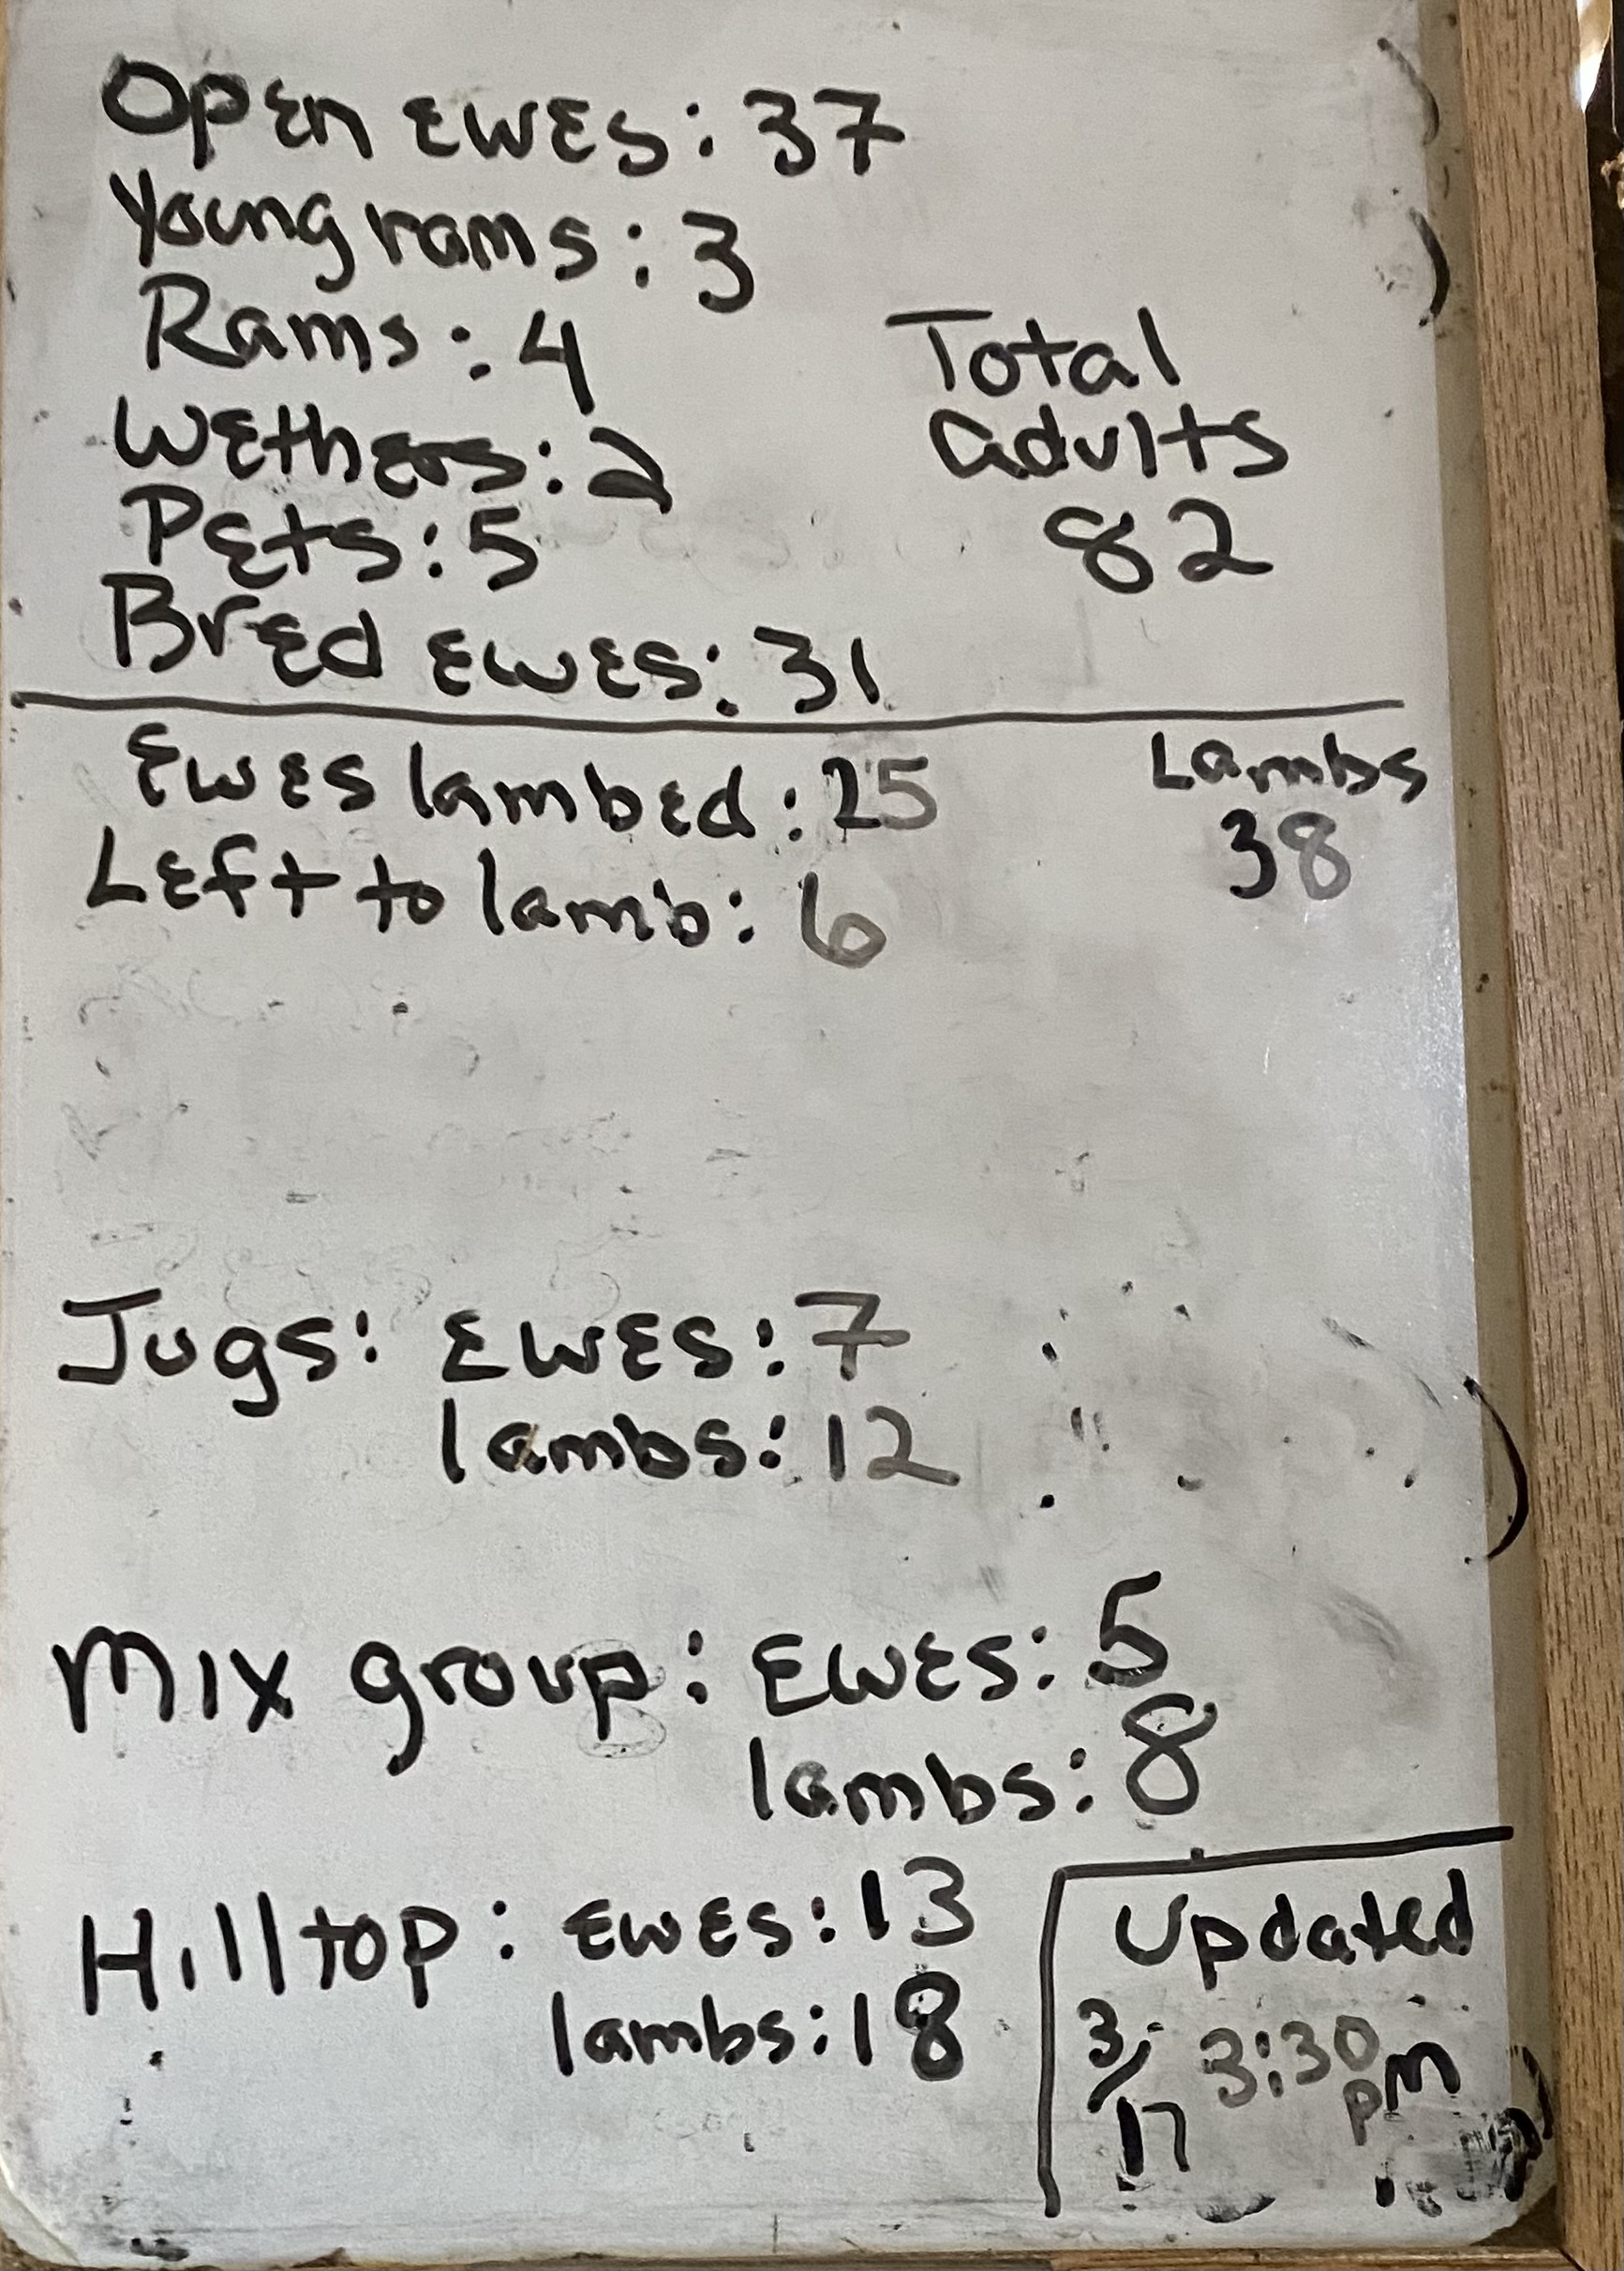 Open ewes: 37
Young rams: 3
Rams: 4
Wethers: 2
Pets: 5
Bred ewes: 31
Total
adults
82
Ewes lambed: 25
Left to lamb: 6
Lambs
38
Jugs: Ewes: 7
lambs: 12
Mix group: Ewes: 5
lambs: 8
Hilltop: Ewes: 13
lambs: 18
Updated
3/17 3:30 pm